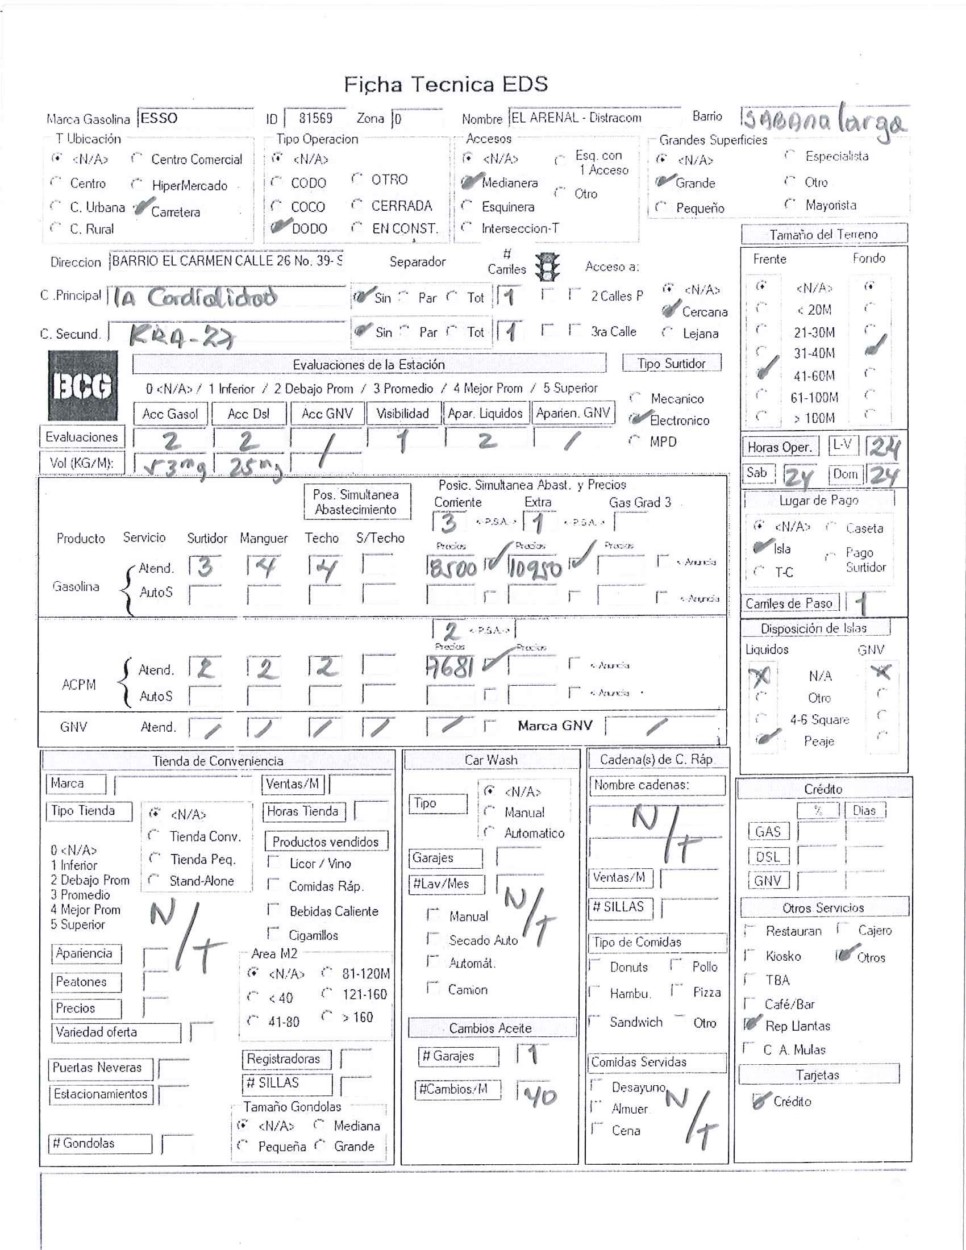 Ficha Tecnica EDS
Marca Gasolina ESSO ID 81569 Zona 0 Nombre EL ARENAL - Distracom Barrio SABANA larga
T Ubicación Tipo Operacion Accesos Grandes Superficies
<N/A> Centro Comercial <N/A> <N/A> Esq. con 1 Acceso <N/A> Especialista
Centro HiperMercado CODO OTRO Medianera Otro Grande Otro
C. Urbana Carretera COCO CERRADA Esquinera Pequeño Mayorista
C. Rural DODO EN CONST. Interseccion-T
Tamaño del Terreno
Direccion BARRIO EL CARMEN CALLE 26 No. 39- S Separador # Carriles Acceso a: Frente Fondo
C .Principal lA Cordialidad Sin Par Tot 1 2 Calles P <N/A> Cercana
C. Secund. KRA-27 Sin Par Tot 1 3ra Calle Lejana
<N/A>
< 20M
21-30M
31-40M
41-60M
61-100M
> 100M
BCG
Evaluaciones de la Estación Tipo Surtidor
0 <N/A> / 1 Inferior / 2 Debajo Prom / 3 Promedio / 4 Mejor Prom / 5 Superior
Mecanico
Electronico
MPD
Acc Gasol Acc Dsl Acc GNV Visibilidad Apar. Liquidos Aparien. GNV
Evaluaciones 2 2 / 1 2 /
Vol (KG/M): 53mg 25mg
Horas Oper. L-V 24
Sab 24 Dom 24
Posic. Simultanea Abast. y Precios
Pos. Simultanea Abastecimiento Corriente Extra Gas Grad 3
3 < P.S.A. > 1 < P.S.A. >
Producto Servicio Surtidor Manguer Techo S/Techo Precios Precios Precios
Gasolina Atend. 3 4 4 8500 10950 < Anuncia
AutoS < Anuncia
2 < P.S.A. >
Precios Precios
ACPM Atend. 2 2 2 7681 < Anuncia
AutoS < Anuncia
GNV Atend. / / / / / Marca GNV /
Lugar de Pago
<N/A> Caseta
Isla Pago Surtidor
T-C
Carriles de Paso 1
Disposición de Islas
Liquidos GNV
N/A
Otro
4-6 Square
Peaje
Tienda de Conveniencia
Marca Ventas/M
Tipo Tienda <N/A> Horas Tienda
Tienda Conv. Productos vendidos
Tienda Peq. Licor / Vino
Stand-Alone Comidas Ráp.
Bebidas Caliente
Cigarrillos
0 <N/A>
1 Inferior
2 Debajo Prom
3 Promedio
4 Mejor Prom
5 Superior
N/T
Apariencia
Peatones
Precios
Variedad oferta
Area M2
<N/A> 81-120M
< 40 121-160
41-80 > 160
Puertas Neveras Registradoras
Estacionamientos # SILLAS
Tamaño Gondolas
# Gondolas <N/A> Mediana
Pequeña Grande
Car Wash
Tipo <N/A>
Manual
Automatico
Garajes
#Lav/Mes
N/T
Manual
Secado Auto
Automát.
Camion
Cambios Aceite
# Garajes 1
#Cambios/M 40
Cadena(s) de C. Ráp.
Nombre cadenas:
N/T
Ventas/M
# SILLAS
Tipo de Comidas
Donuts Pollo
Hambu. Pizza
Sandwich Otro
Comidas Servidas
Desayuno
Almuer
Cena
N/T
Crédito
% Dias
GAS
DSL
GNV
Otros Servicios
Restauran Cajero
Kiosko Otros
TBA
Café/Bar
Rep Llantas
C A. Mulas
Tarjetas
Crédito